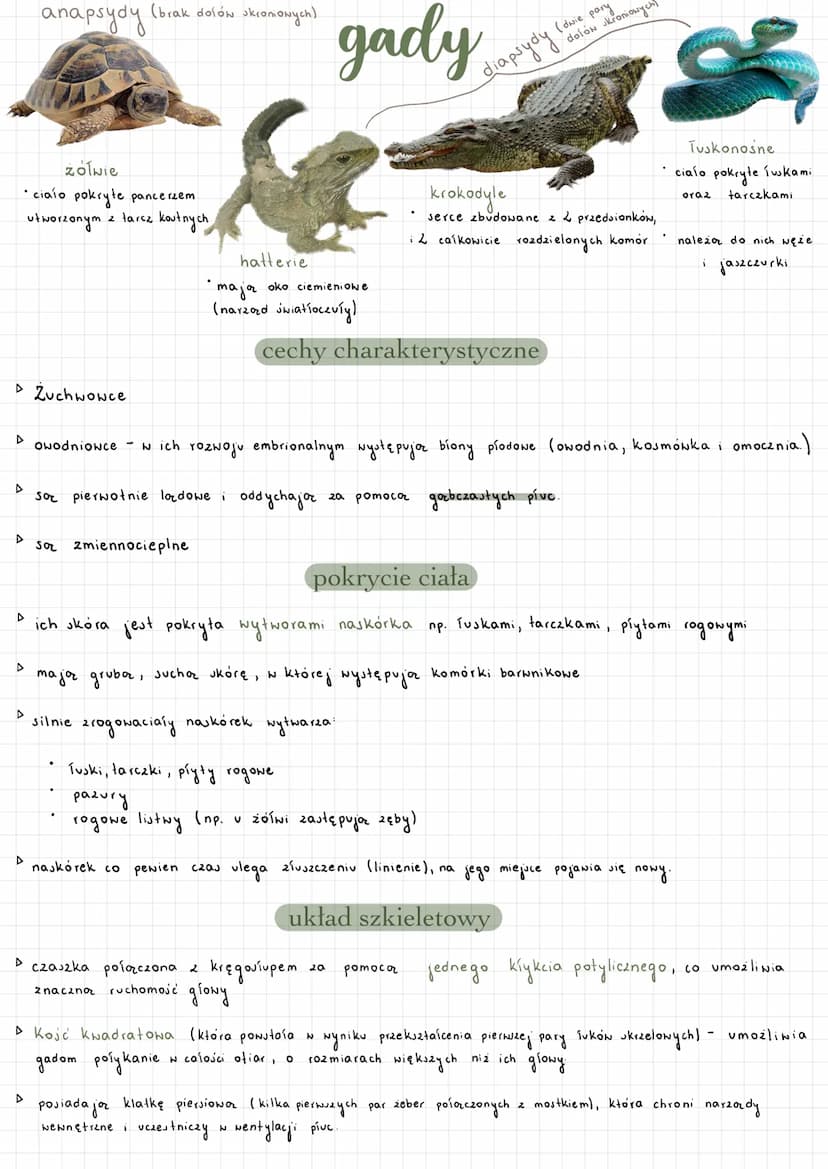 anapsydy (brak dołów skroniowych)
gady
diapsydy (dwie pary
dołów skroniowych)
żółwie
• ciało pokryte pancerzem
utworzonym z tarcz kostnych
hatterie
• mają oko ciemieniowe
(narząd światłoczuły)
krokodyle
• serce zbudowane z 2 przedsionków,
i 2 całkowicie rozdzielonych komór
łuskonośne
• ciało pokryte łuskami
oraz tarczkami
• należą do nich węże
i jaszczurki
cechy charakterystyczne
▹ Żuchwowce
▹ owodniowce - w ich rozwoju embrionalnym występują błony płodowe (owodnia, kosmówka i omocznia.)
▹ są pierwotnie lądowe i oddychają za pomocą gąbczastych płuc.
▹ są zmiennocieplne
pokrycie ciała
▹ ich skóra jest pokryta wytworami naskórka np. łuskami, tarczkami, płytami rogowymi
▹ mają grubą, suchą skórę, w której występują komórki barwnikowe
▹ silnie zrogowaciały naskórek wytwarza:
• łuski, tarczki, płyty rogowe
• pazury
• rogowe listwy (np. u żółwi zastępują zęby)
▹ naskórek co pewien czas ulega złuszczeniu (linienie), na jego miejsce pojawia się nowy.
układ szkieletowy
▹ czaszka połączona z kręgosłupem za pomocą jednego kłykcia potylicznego, co umożliwia
znaczną ruchomość głowy
▹ Kość kwadratowa (która powstała w wyniku przekształcenia pierwszej pary łuków skrzelowych) - umożliwia
gadom połykanie w całości ofiar, o rozmiarach większych niż ich głowy.
▹ posiadają klatkę piersiową (kilka pierwszych par żeber połączonych z mostkiem), która chroni narządy
wewnętrzne i uczestniczy w wentylacji płuc.